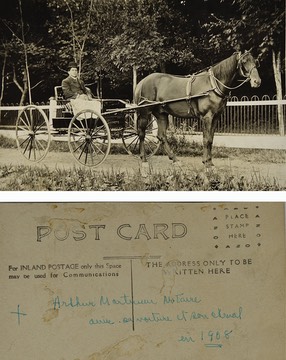 POST CARD
PLACE
STAMP
HERE
For INLAND POSTAGE only this Space
may be used for Communications
THE ADDRESS ONLY TO BE
WRITTEN HERE
Arthur Martineau Notaire
avec sa voiture et son cheval
en 1908